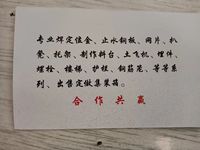 专业焊定位金、止水钢板、网片、扒
凳、托架、制作料台、土飞机、埋件、
螺栓、楼梯、护栏、钢筋笼、等等系
列、出售定做集装箱。
合作共赢